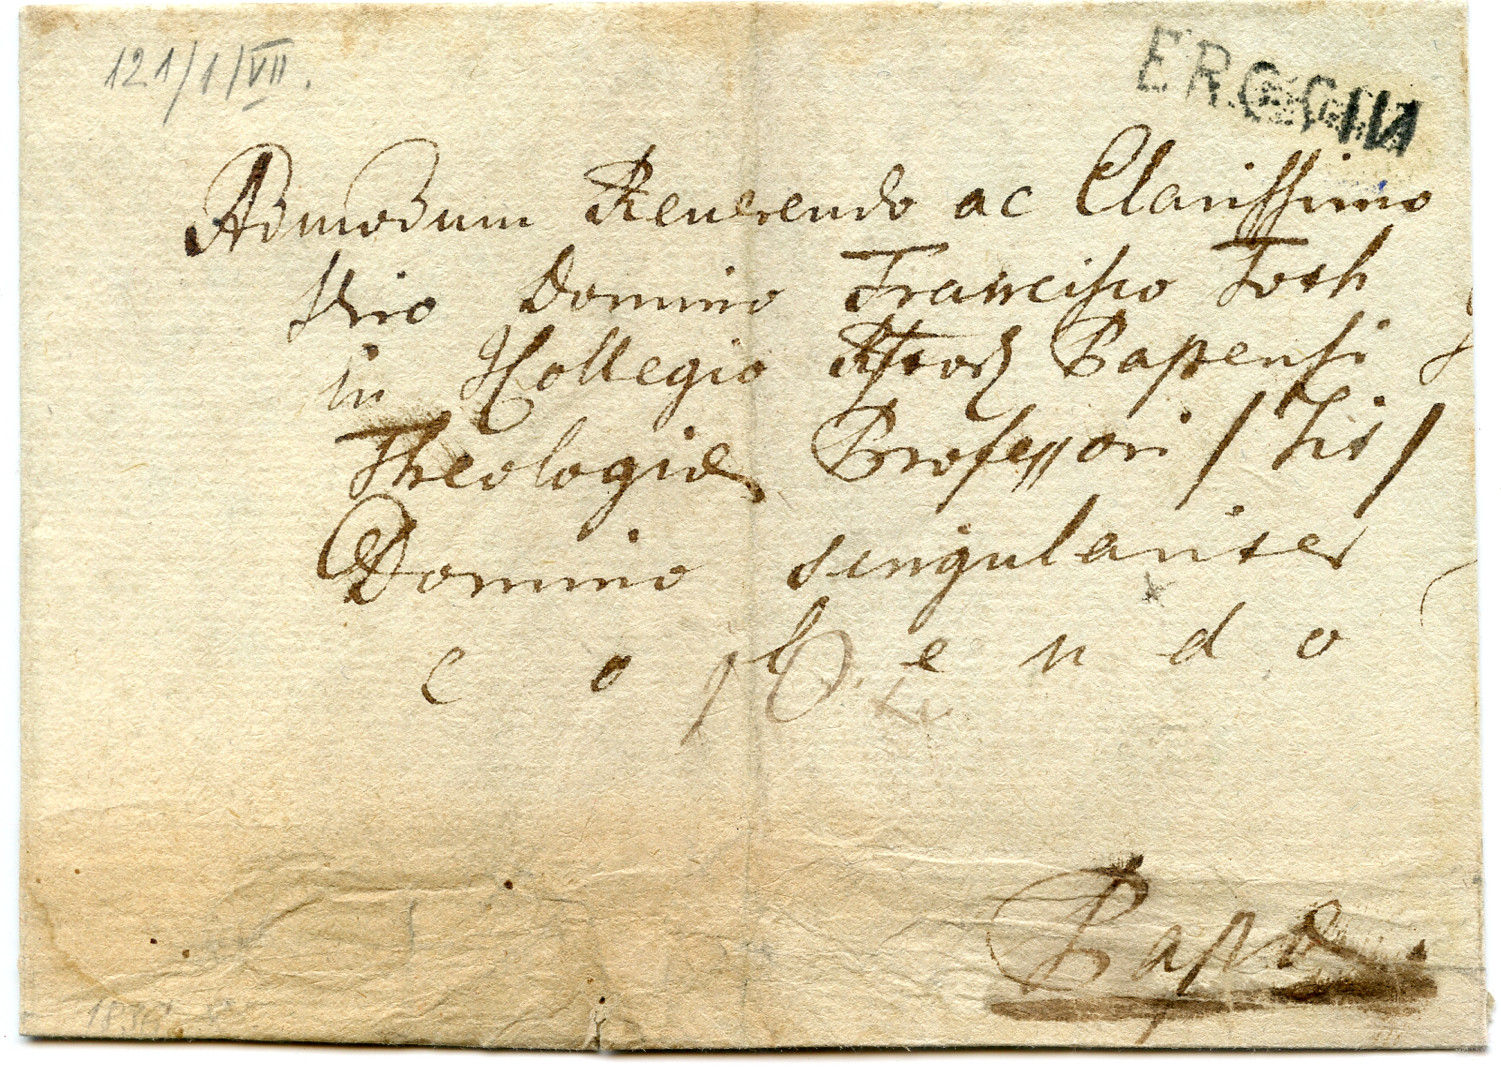 121/1/VII.
Admodum Reverendo ac Clarissimo
Viro Domino Francisco Toth
in Collegio Papensi
Theologiæ Professori / Tit /
Domino singulariter
colendo
Papæ.